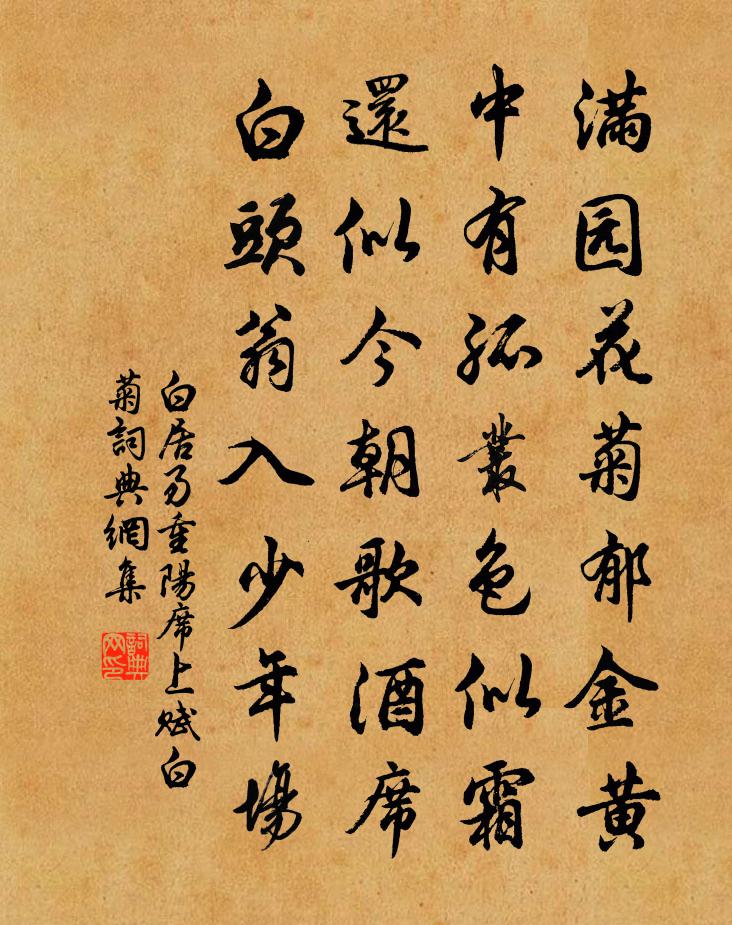 满园花菊郁金黄
中有孤叢色似霜
還似今朝歌酒席
白頭翁入少年場
白居易重陽席上赋白
菊詞典網集
詞典
网印